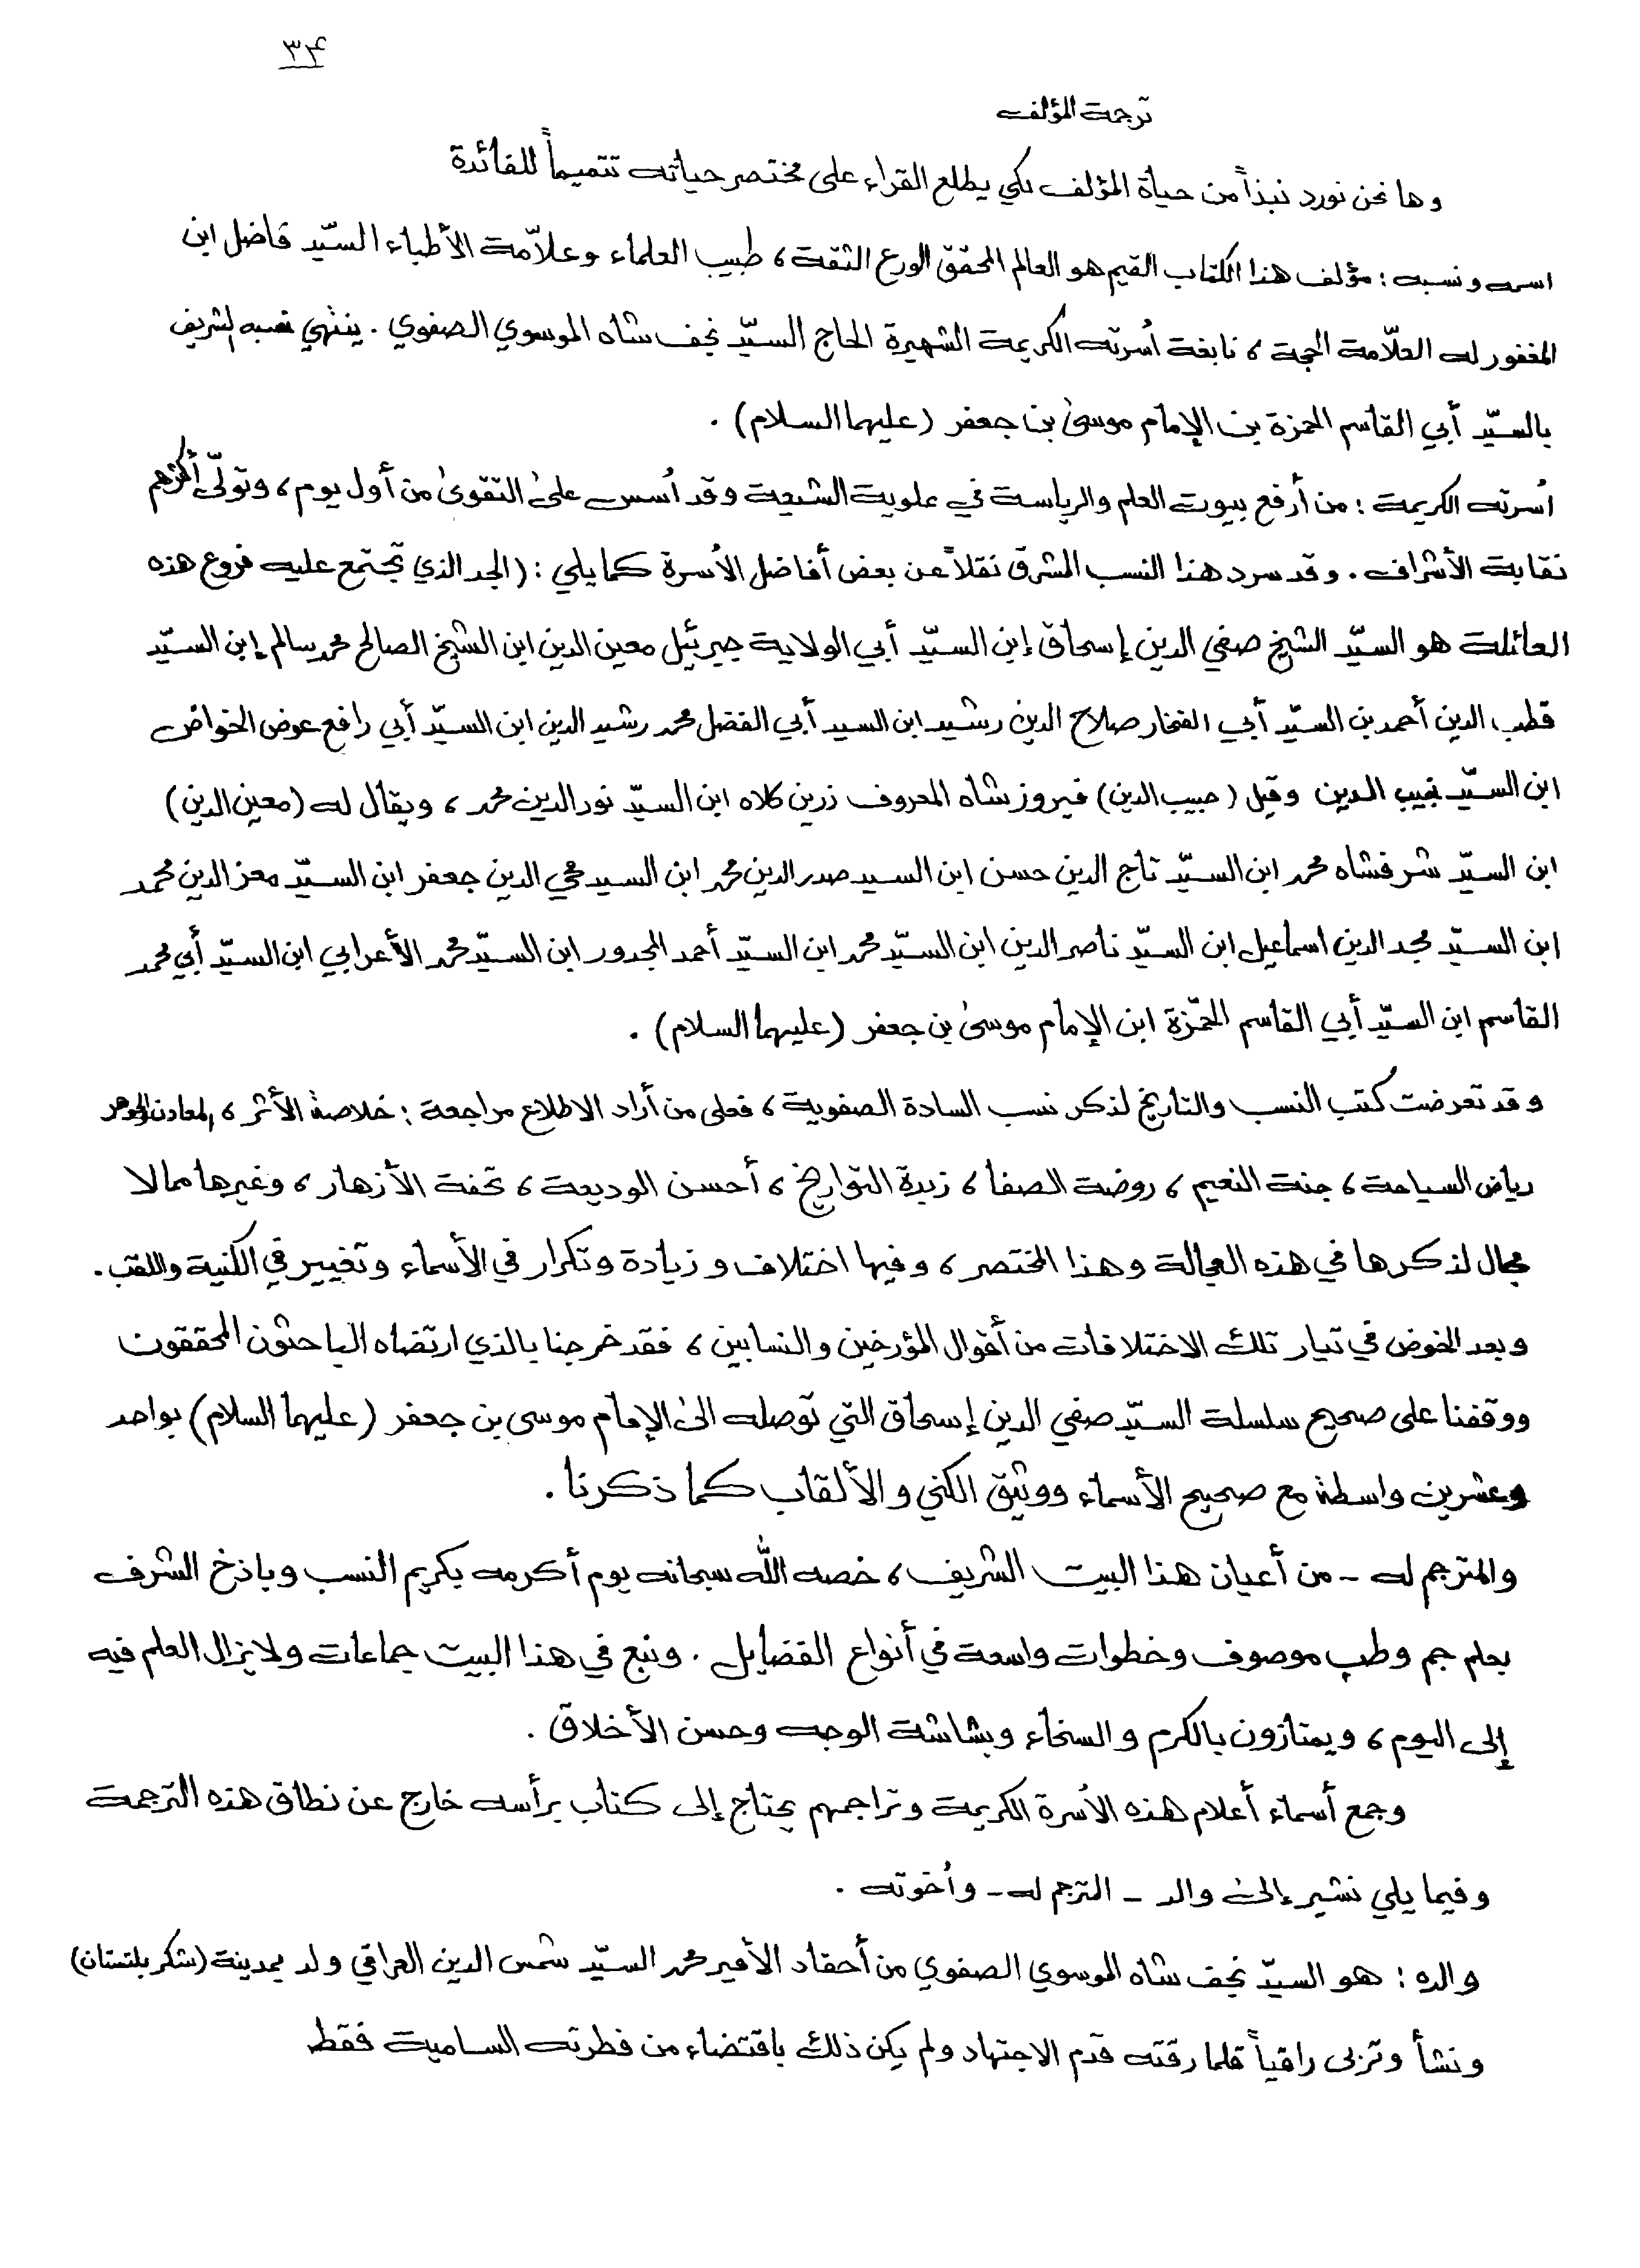 ۳۴
ترجمة المؤلف
وها نحن نورد نبذاً من حياة المؤلف لكي يطلع القراء على مختصر حياته تتميماً للفائدة
اسمه ونسبه : مؤلف هذا الكتاب القيم هو العالم المحقق الورع الثقة ، طبيب العلماء وعلاّمة الأطباء السيّد فاضل ابن
المغفور له العلاّمة الحجة ، نابغة اُسرته الكريمة الشهيرة الحاج السيّد نجف شاه الموسوي الصفوي . ينتهي نسبه الشريف
بالسيّد أبي القاسم الحمزة بن الإمام موسىٰ بن جعفر (عليهما السلام) .
اُسرته الكريمة : من أرفع بيوت العلم والرياسة في علوية الشيعة وقد اُسس علىٰ التقوىٰ من أول يوم ، وتولّى أكثرهم
نقابة الأشراف . وقد سرد هذا النسب المشرق نقلاً عن بعض أفاضل الاُسرة كما يلي : (الجد الذي تجتمع عليه فروع هذه
العائلة هو السيّد الشيخ صفي الدين إسحاق إبن السيّد أبي الولاية جبرئيل معين الدين ابن الشيخ الصالح محمد سالم إبن السيّد
قطب الدين أحمد بن السيّد أبي الفخار صلاح الدين رشيد ابن السيد أبي الفضل محمد رشيد الدين ابن السيّد أبي رافع عوض الخواض
ابن السيّد نجيب الدين وقيل (حبيب الدين) فيروز شاه المعروف زرين كلاه ابن السيّد نور الدين محمد ، ويقال له (معين الدين)
ابن السيّد شرفشاه محمد ابن السيّد تاج الدين حسن ابن السيد صدر الدين محمد ابن السيد محي الدين جعفر ابن السيّد معز الدين محمد
ابن السيّد مجد الدين اسماعيل ابن السيّد ناصر الدين ابن السيّد محمد ابن السيّد أحمد المجدور ابن السيّد محمد الأعرابي ابن السيّد أبي محمد
القاسم ابن السيّد أبي القاسم الحمّزة ابن الإمام موسىٰ بن جعفر (عليهما السلام) .
وقد تعرضت كتب النسب والتاريخ لذكر نسب السادة الصفوية ، فعلى من أراد الاطلاع مراجعة : خلاصة الأثر ، المعادن الجوهر
رياض السياحة ، جنة النعيم ، روضة الصفا ، زبدة التواريخ ، أحسن الوديعة ، تحفة الأزهار ، وغيرها مما لا
مجال لذكرها في هذه العجالة وهذا المختصر ، وفيها اختلاف وزيادة وتكرار في الأسماء وتغيير في الكنية واللقب .
وبعد الخوض في تيار تلك الاختلافات من أقوال المؤرخين والنسابين ، فقد خرجنا بالذي ارتضاه الباحثون المحققون
ووقفنا على صحيح سلسلة السيّد صفي الدين إسحاق التي توصله الىٰ الإمام موسى بن جعفر (عليهما السلام) بواحد
وعشرين واسطة مع صحيح الأسماء ووثيق الكني والألقاب كما ذكرنا .
والمترجم له - من أعيان هذا البيت الشريف ، خصه اللّه سبحانه يوم أكرمه بكريم النسب وباذخ الشرف
بعلم جم وطب موصوف وخطوات واسعة في أنواع الفضايل . ونبغ في هذا البيت جماعات ولا يزال العلم فيه
إلى اليوم ، ويمتازون بالكرم والسخاء وبشاشة الوجه وحسن الأخلاق .
وجمع أسماء أعلام هذه الاُسرة الكريمة وتراجمهم يحتاج إلى كتاب برأسه خارج عن نطاق هذه الترجمة
وفيما يلي نشير إلىٰ والد - المترجم له - واُخوته .
والده : هو السيّد نجف شاه الموسوي الصفوي من أحفاد الأمير محمد السيّد شمس الدين العراقي ولد بمدينة (شكر بلتستان)
ونشأ وتربى راقياً قلما رقته قدم الاجتهاد ولم يكن ذلك باقتضاء من فطرته السامية فقط